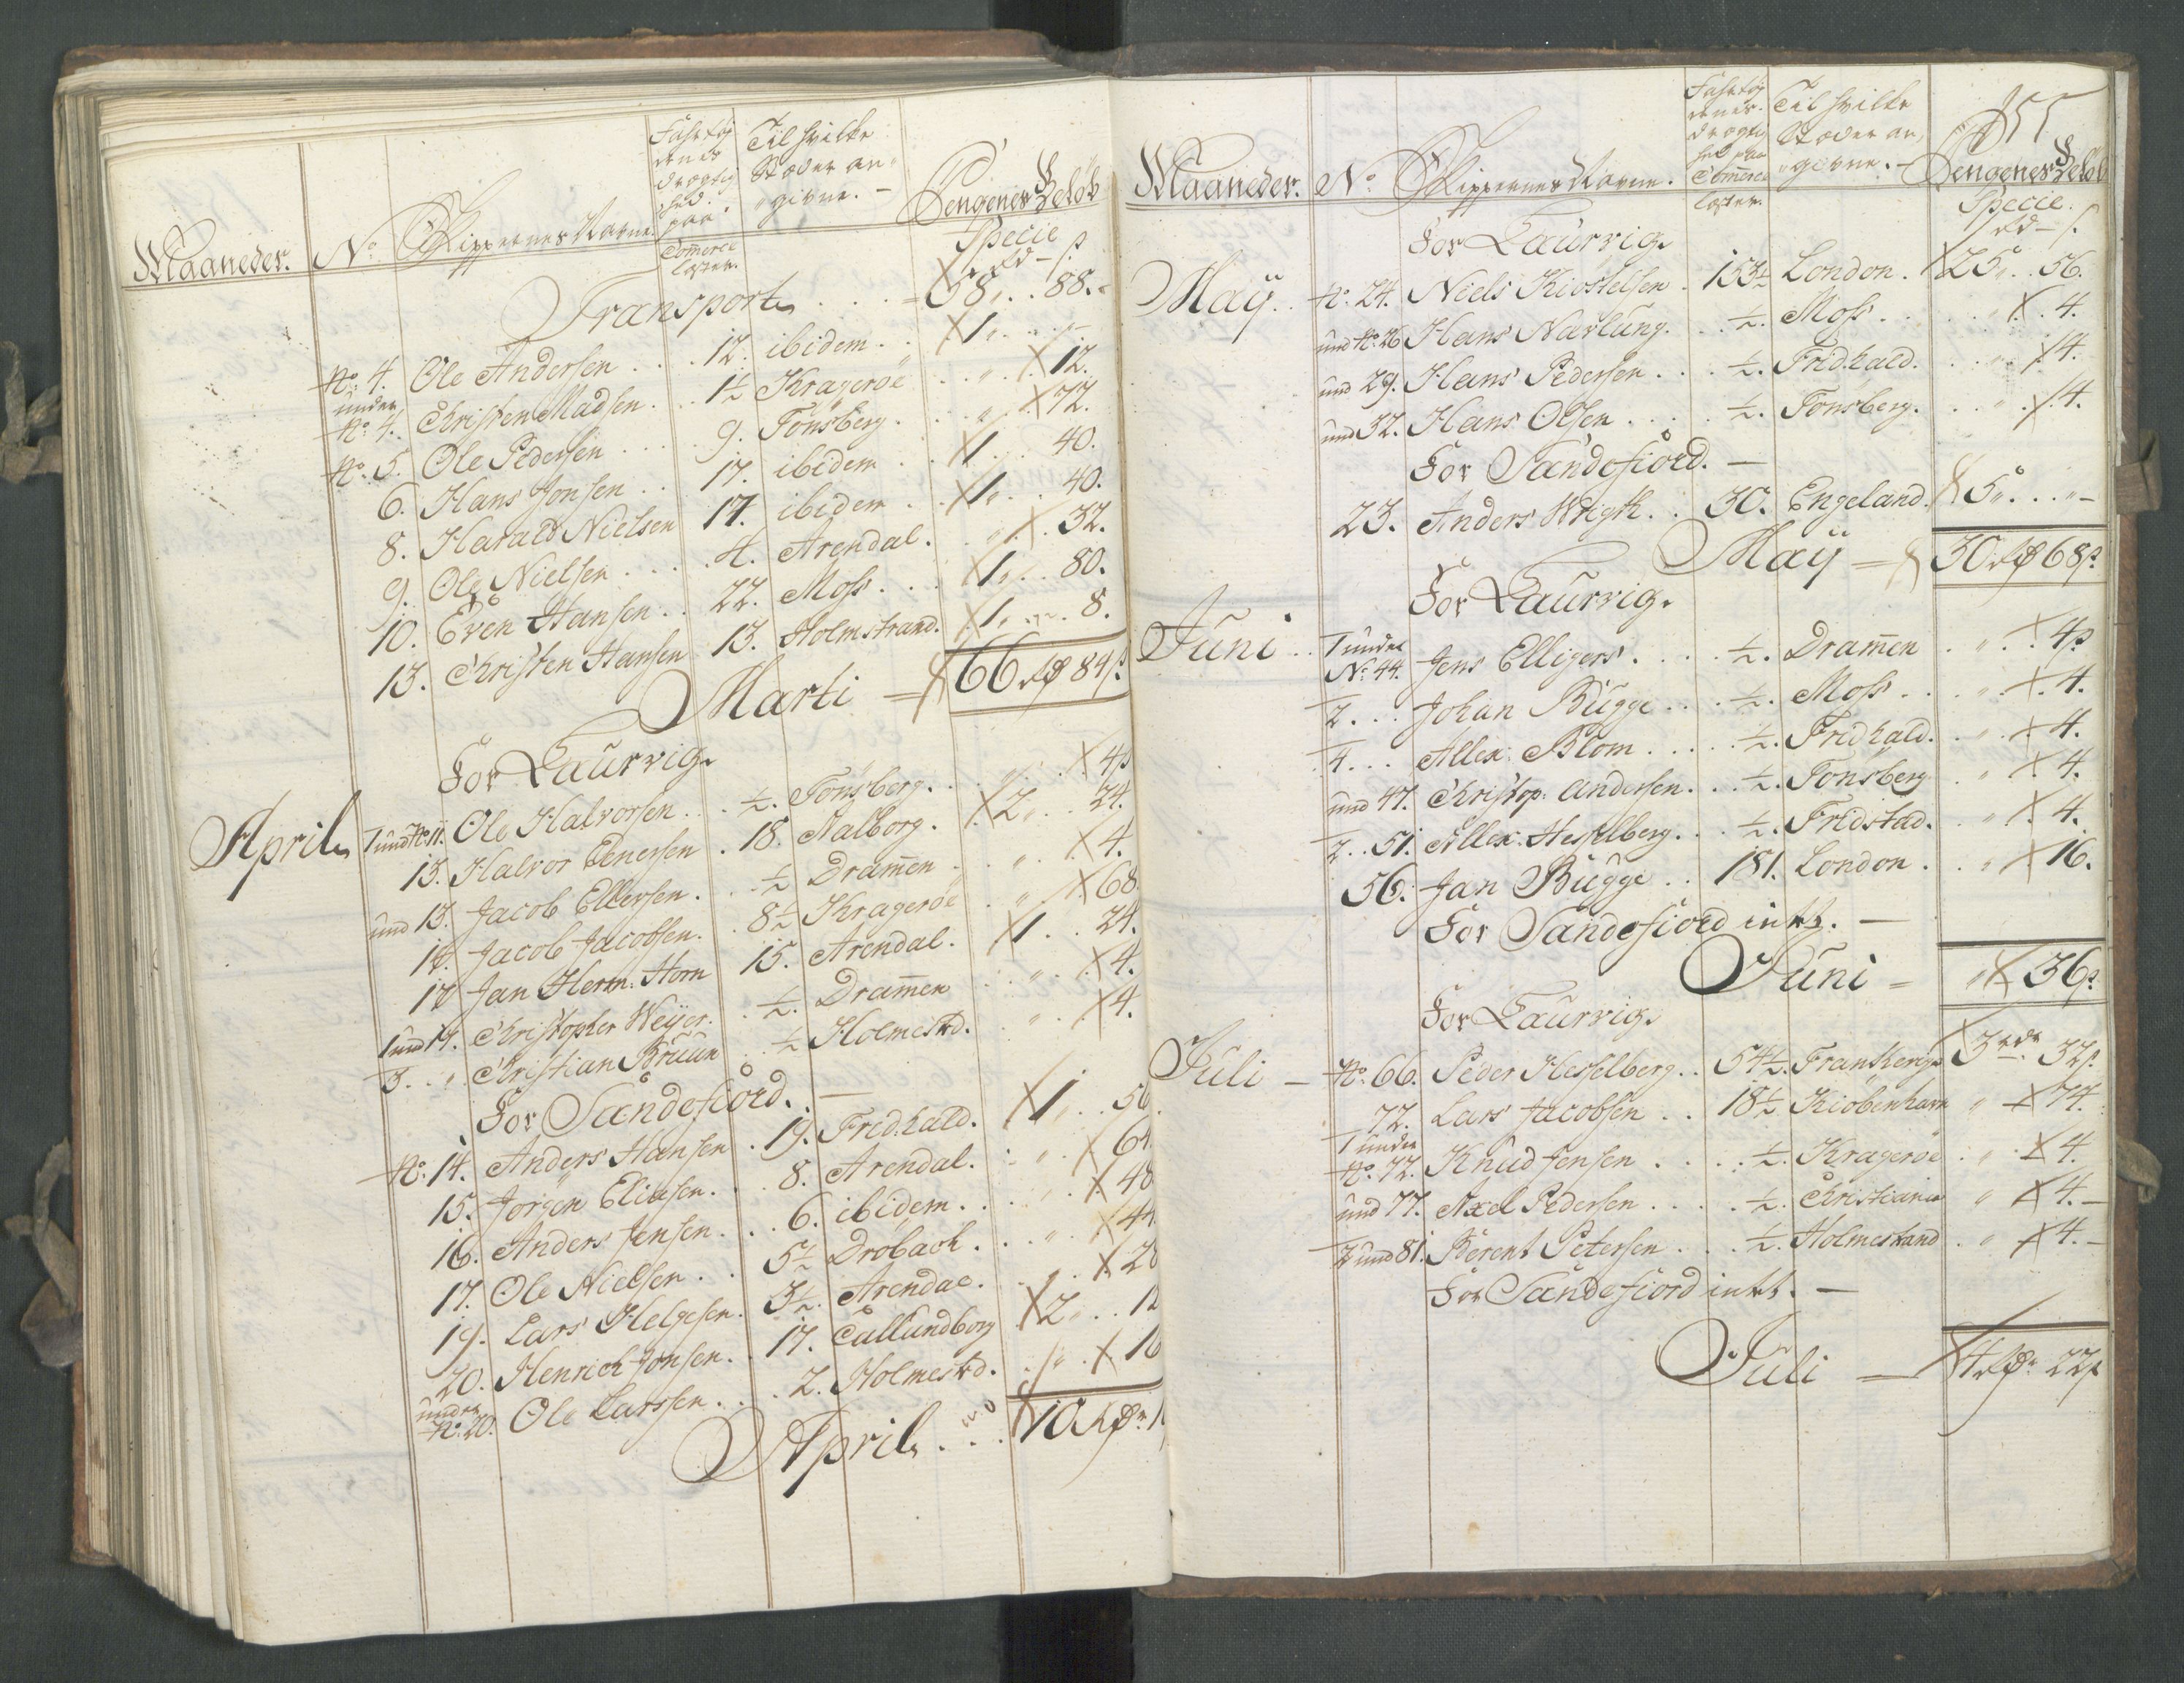 Maaneder. No. Skippernes Navne. Fahrtöj ernes drægtig hed paa Commerce læster. Til hvilke Stæder an„ „givne. – Pengenes Belöb Specie rd – s
Transport . . . = 58„ . . 88.
No. 4. Ole Andersen . . . 12. ibidem . . 1„ . . „ –
under No. 4. Christen Madsen . . 1½ Kragerøe . . „ . . 12.
No. 5. Ole Pedersen . . . 9. Tönsberg . . „ . . 72.
6. Hans Jonsen . . 17. ibidem . . 1 . . 40.
8. Harald Nielsen 17. ibidem . . 1„ . . 40.
9. Ole Nielsen . . . 4. Arendal . . „ . . 32.
10. Even Hansen . . 22. Moss . . . 1„ . . 80.
13. Christen Hansen 13. Holmstrand. 1„ . . 8.
Marti = 66 rd 84 s.
For Laurvig.
April 1 und No. 11. Ole Halvorsen . . ½. Tönsberg . . „ . . 4 s
13. Halvor Enersen . 18. Aalborg . . 2„ . . 24.
und 13. Jacob Ellersen . . ½ Drammen . . „ . . 4.
14. Jacob Jacobsen . . 8½ Kragerøe . . „ . . 68.
17. Jan Herm. Horn 15. Arendal . . 1 . . 24.
1 und 17. Christopher Weyer . . ½. Drammen . . „ . . 4.
3 . . „ Christian Bruun . . ½ Holmestrd. . „ . . 4.
For Sandefiord. –
No. 14. Anders Hansen . 19. Fridhald. 1„ . . 56.
15. Jörgen Eliasen . . 8. Arendal. . „ . . 64
16. Anders Jensen . . 6. ibidem . . . . 48
17. Ole Nielsen . . 5½ Dröbach . . „ . . 44
19. Lars Helgesen . 3½. Arendal . . . . 28
20. Henrich Jonsen . . 17. Callundborg 2„ . . 12
under No. 20. Ole Larssen . . . 2. Holmestrd. . „ . 16
April . . . 10 rd
155
Maaneder. No. Skippernes Navne. Fahrtöj ernes drægtig hed paa Commerce læster. Til hvilke Stæder an„ „givne. – Pengenes Belöb Specie. rd – s.
For Laurvig.
May . . No. 24. Niels Kiostelsen . 153½ London . 25„ . . 56.
und No. 26 Hans Narlung . . . ½. Moss . . . . . 4.
und 29. Hans Pedersen . . . ½. Fridhald. . . „ . 4.
und 32. Hans Olsen . . . . ½. Tonsberg. . . „ . 4.
For Sandefiord. –
23. Anders Wrigth . . 30. Engeland. 5„ . . „ –
May = 30 rd 68 s.
For Laurvig.
Juni . . 1 under No. 44. Jens Elligers . . . ½. Drammen . „ . . 4 s
2 . . . Johan Bugge . . . ½. Moss . . . „ . . 4.
4 . . . Allex: Blom . . . . ½. Fridhald. . „ . . 4.
und 47. Christop: Andersen . . . ½. Tonsberg . „ . 4.
2 . . 51. Allex: Hesselberg . . . ½. Fridstad. . „ . 4.
56. Jan Bugge . . 181. London . . „ . 16.
For Sandefiord intt. –
Juni = „ 36 s.
For Laurvig.
Juli – No. 66. Peder Hesselberg . . 54½. Frankerige 3 rd. 32 s.
72. Lars Jacobsen . . 18½ Kiöbenhavn „ 74.
1 under No. 72. Knud Jensen . . . . ½. Kragerøe . „ . 4.
und 77. Axel Pedersen . . . . ½. Christiania „ 4. –
2 und 81. Berent Petersen . . . ½. Holmestrand . „ 4. –
For Sandefiord intt. –
Juli = 4 rd. 22 s